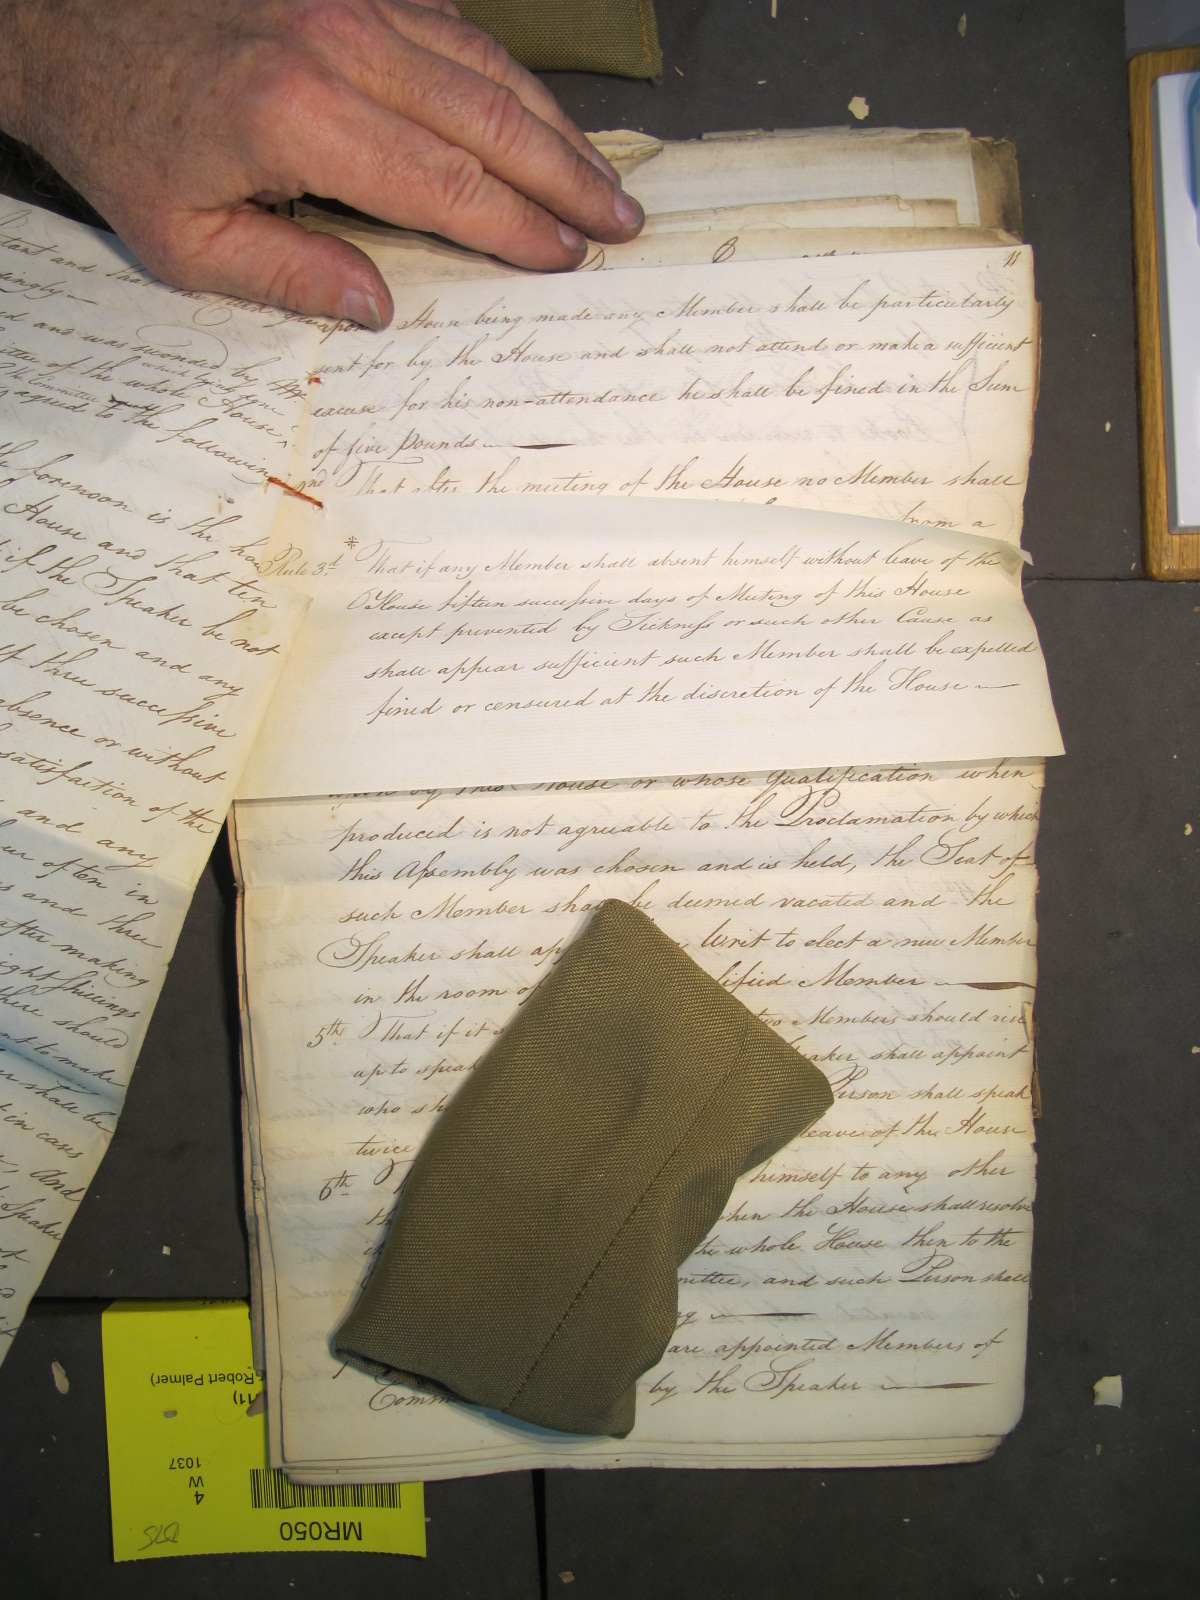 11
House being made any Member shall be particularly
sent for by the House and shall not attend or make a sufficient
excuse for his non-attendance he shall be fined in the Sum
of five Pounds
2nd That after the meeting of the House no Member shall
from a
Rule 3d * That if any Member shall absent himself without leave of the
House fifteen successive days of Meeting of this House
except prevented by Sickness or such other Cause as
shall appear sufficient such Member shall be expelled
fined or censured at the discretion of the House
by this House or whose qualification when
produced is not agreeable to the Proclamation by which
this Assembly was chosen and is held, the Seat of
such Member shall be deemed vacated and the
Speaker shall Writ to elect a new Member
in the room Member
5th That if it two Members should rise
up to speak shall appoint
who Person shall speak
twice leave of the House
6th himself to any other
when the House shall resolve
the whole House then to the
and such Person shall
are appointed Members of
by the Speaker
tant and that the Clerk
ed and was seconded by
which being
of the whole House
The Committee
agreed to the following
the forenoon is the hour
House and that ten
if the Speaker be not
be chosen and any
if three successive
absence or without
satisfaction of the
and any
often in
and three
after making
eight shillings
there should
to make
shall be
in cases
And
Speaker
Robert Palmer)
11)
4
W
1037
MR050